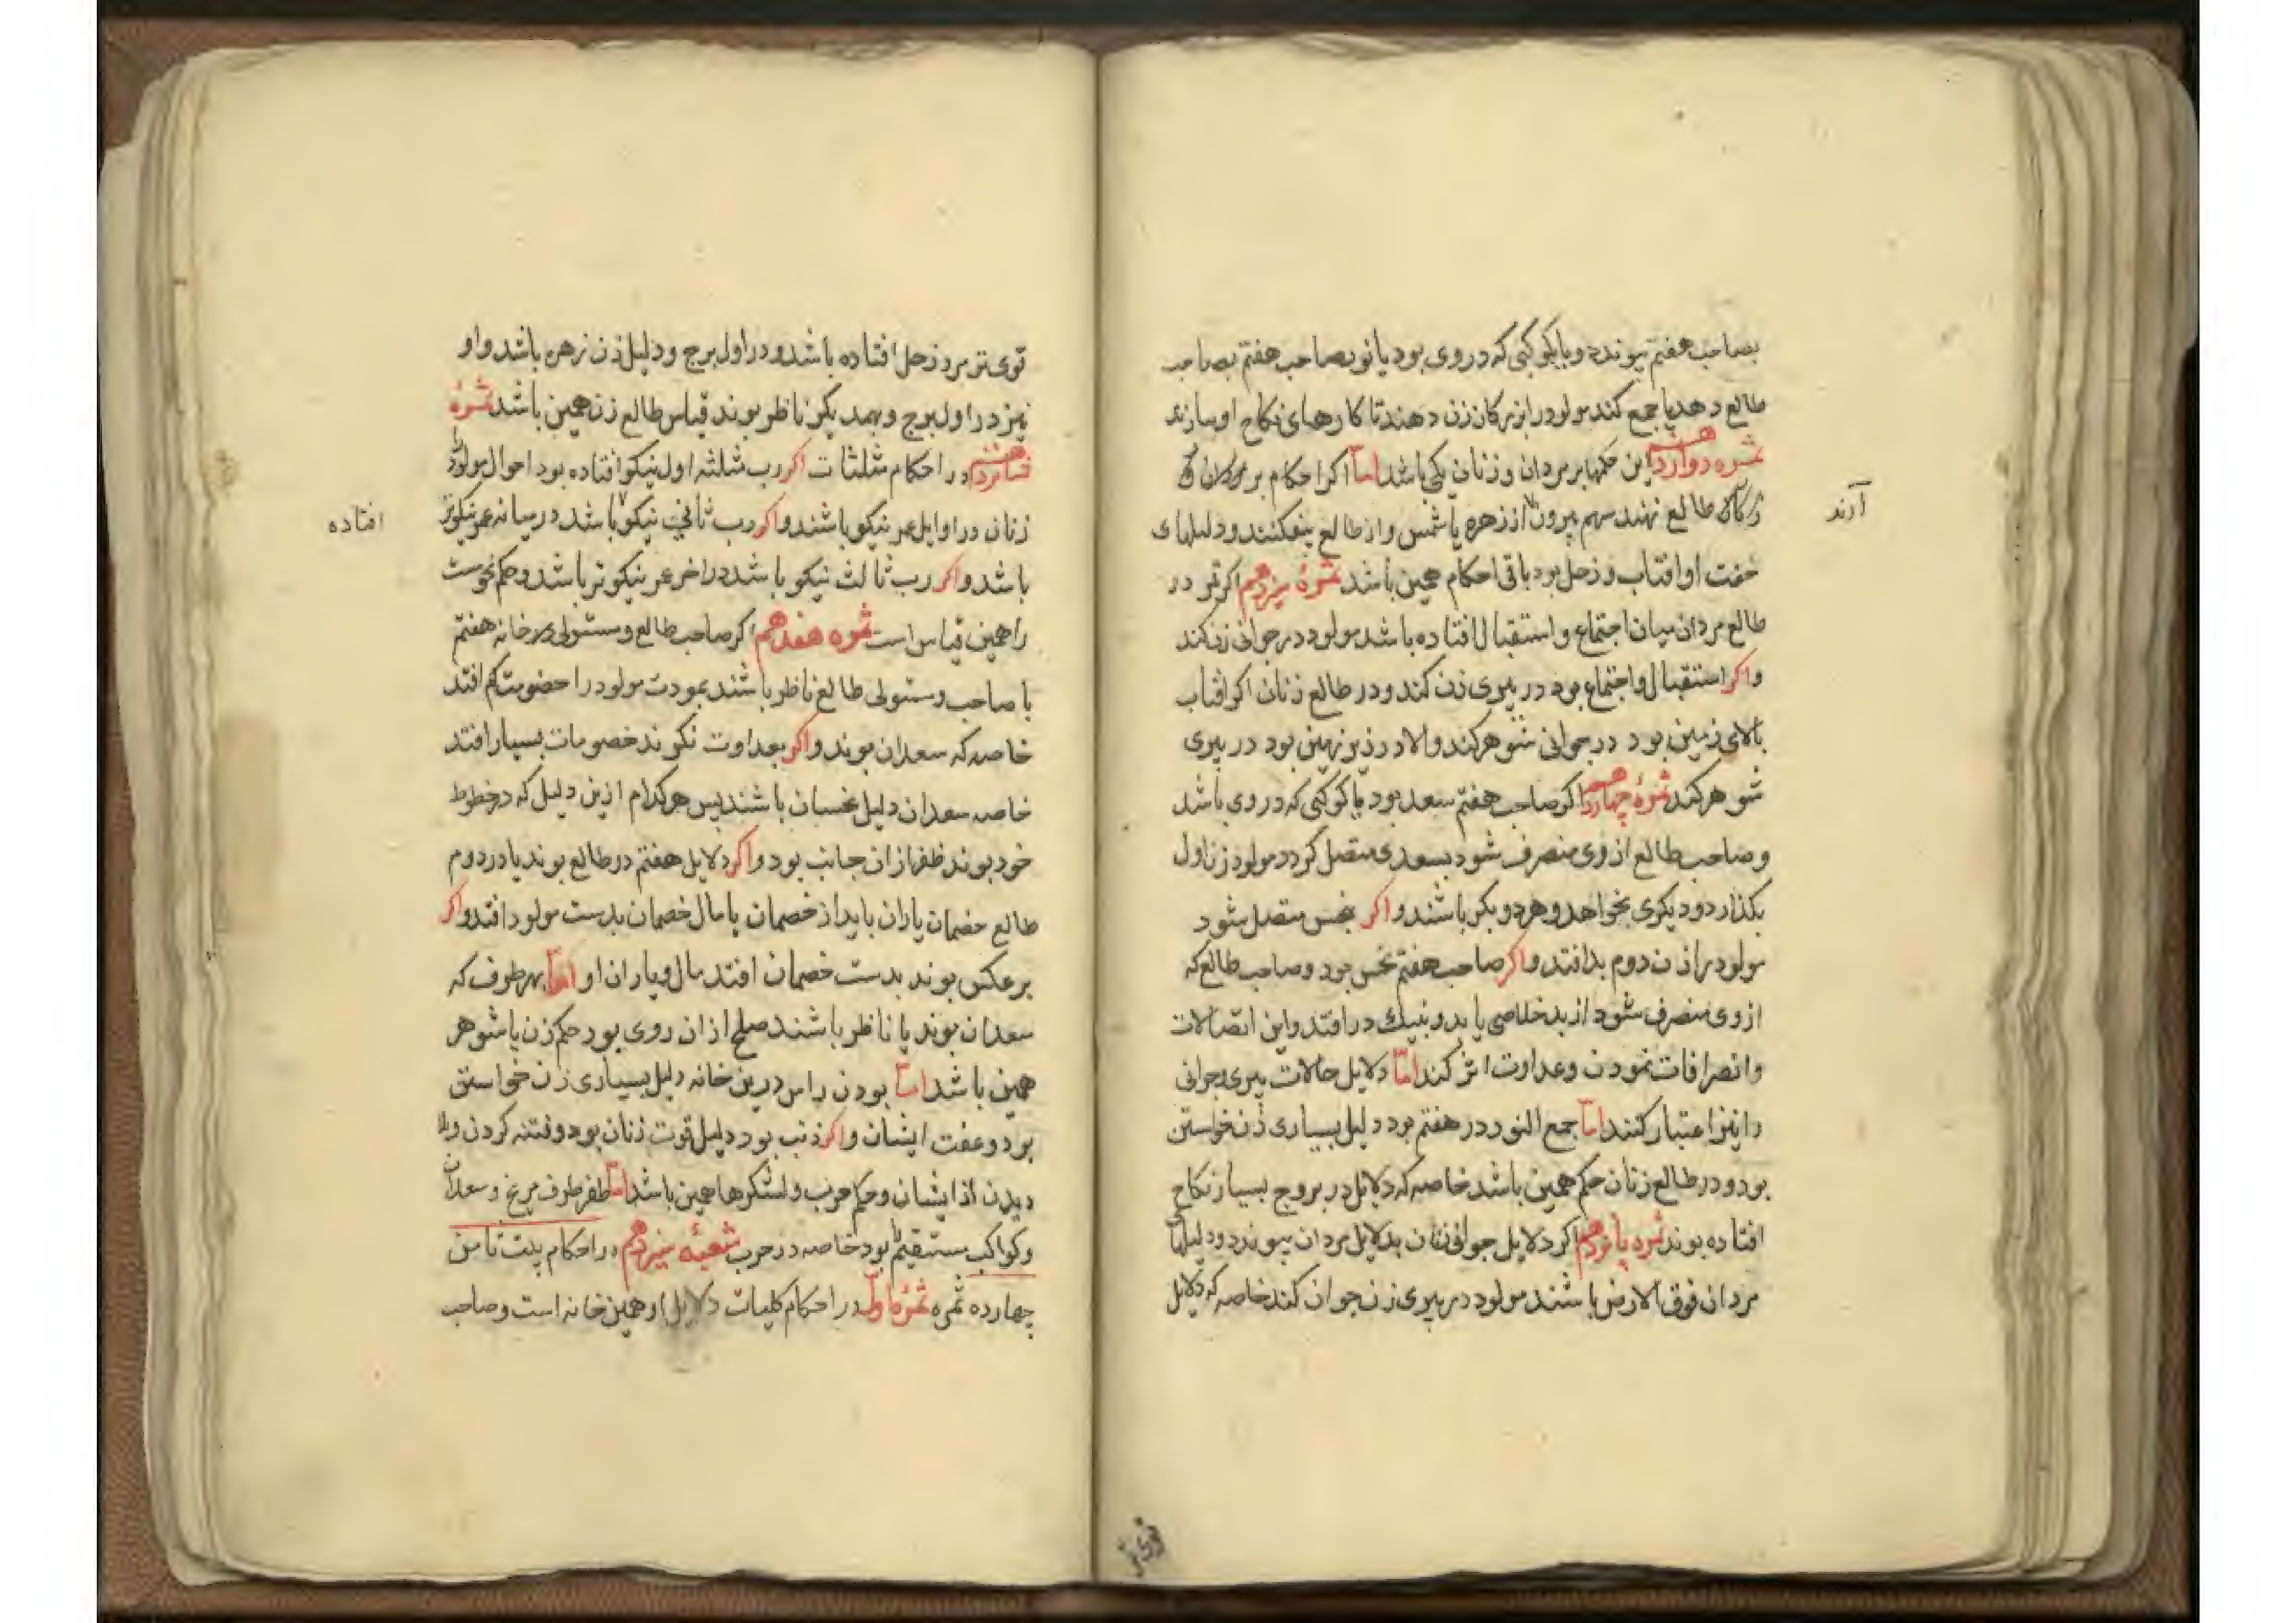 بصاحب هفتم پیوندد و یا کوکبی که در وی بود یا نور صاحب هفتم بصاحب
طالع دهد یا جمع کند مولود را بزرکان زن دهند تا کارهای نکاح او سازند
ثمره دوازدهم این حکمها بر مردان و زنان یکی باشد اما اکر احکام بر
طالع نهند سهم بیرون از زهره یا شمس و از طالع بیفکنند و دلیلهای
آرند
خفت او افتاب و زحل بود باقی احکام همین باشد ثمرهٔ سیزدهم اکر قمر در
طالع مردان میان اجتماع و استقبال افتاده باشد مولود در جوانی زن کند
و اکر استقبال و اجتماع بود در پیری زن کند و در طالع زنان اکر افتاب
بالای زمین بود در جوانی شوهر کند والا در زیر زمین بود در پیری
شوهر کند ثمرهٔ چهاردهم اکر صاحب هفتم سعد بود یا کوکبی که در وی باشد
و صاحب طالع از وی منصرف شود بسعدی متصل کردد مولود زن اول
بکذارد و دیکری بخواهد و هر دو بکر باشند و اکر بنحس متصل شود
مولود را زن دوم بد افتد و اکر صاحب هفتم نحس بود و صاحب طالع که
از وی منصرف شود از بد خلاصی یابد و بنیک در افتد و این اتصالات
و انصرافات نمودن و عداوت اثر کند اما دلایل حالات پیری و جوانی
را نیز اعتبار کنند اما جمع النور در هفتم بود دلیل بسیاری زن خواستن
بود و در طالع زنان حکم همین باشد خاصه که دلایل در بروج بسیار نکاح
افتاده بوند ثمره پانزدهم اکر دلایل جوانی زنان بدلایل مردان پیوندد و دلیلها
مردان فوق الارض باشند مولود در پیری زن جوان کند خاصه که دلایل
قوی تر
قوی تر مرد زحل افتاده باشد و در اول برج و دلیل زن زهره باشد و او
نیز در اول برج و بهمدیکر ناظر بوند قیاس طالع زن همین باشد ثمرهٔ
شانزدهم در احکام مثلثات اکر رب مثلثه اول نیکو افتاده بود احوال مولود
زنان در اوایل عمر نیکو باشند و اکر رب ثانی نیکو باشد در میانه عمر نیکوتر
افتاده
باشد و اکر رب ثالث نیکو باشد در اخر عمر نیکوتر باشد و حکم نحوست
را همین قیاس است ثمره هفدهم اکر صاحب طالع و مستولی بر خانه هفتم
با صاحب و مستولی طالع ناظر باشند بمودت مولود را خصومت کم افتد
خاصه که سعدان بوند و اکر بعداوت نکرند خصومات بسیار افتد
خاصه سعدان دلیل نحسان باشند پس هر کدام ازین دلیل که در حظوظ
خود بوند ظفر از ان جانب بود و اکر دلایل هفتم در طالع بوند یا در دوم
طالع خصمان یاران یابد از خصمان یا مال خصمان بدست مولود افتد و اکر
بر عکس بوند بدست خصمان افتد مال و یاران او اما بهر طرف که
سعدان بوند یا ناظر باشند صلح از ان روی بود حکم زن با شوهر
همین باشد اما بودن راس درین خانه دلیل بسیاری زن خواستن
بود و عفت ایشان و اکر ذنب بود دلیل قوت زنان بود و فتنه کردن و بلا
دیدن از ایشان و حکم حرب و لشکرها همین باشد اما ظفر طرف مریخ و سعدان
و کواکب مستقیم بود خاصه در حرب شعبهٔ سیزدهم در احکام بیت ثامن
چهارده ثمره ثمرهٔ اول در احکام کلیات دلایل او همین خانه است و صاحب